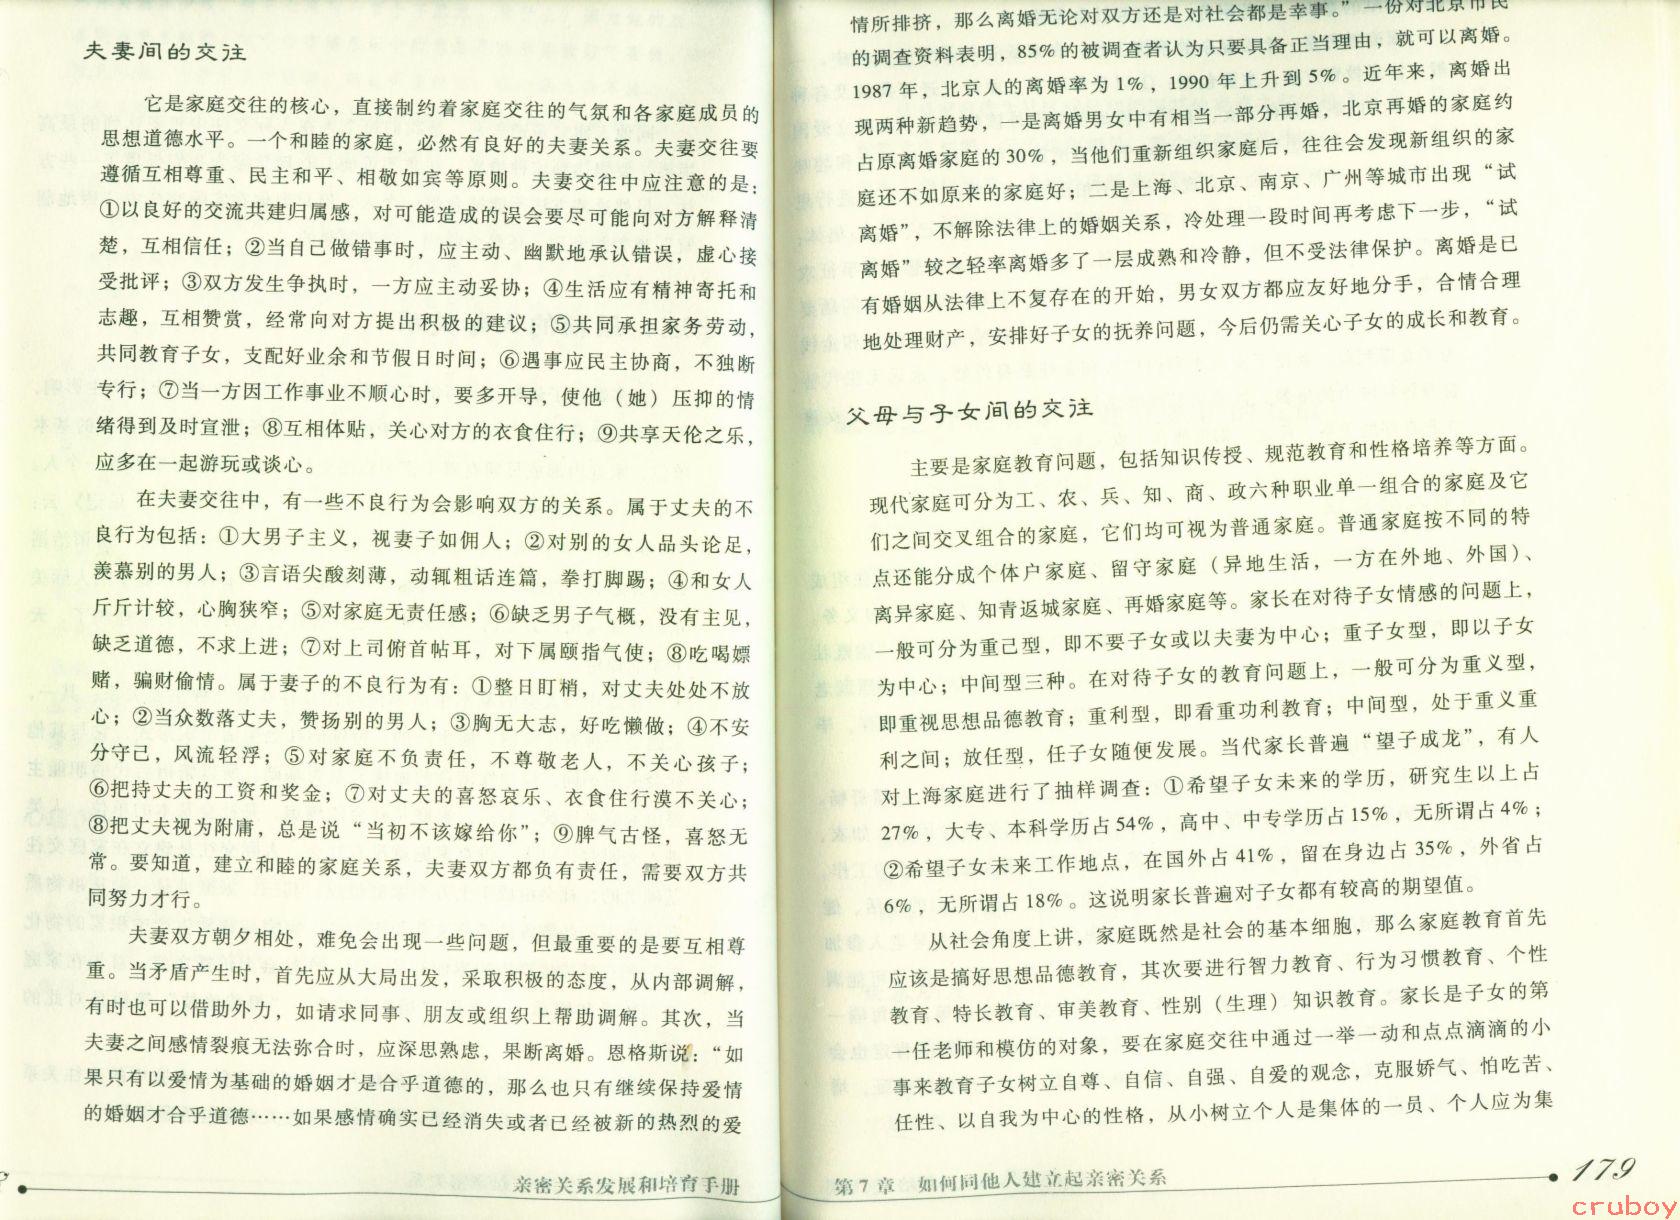 夫妻间的交往
它是家庭交往的核心，直接制约着家庭交往的气氛和各家庭成员的
思想道德水平。一个和睦的家庭，必然有良好的夫妻关系。夫妻交往要
遵循互相尊重、民主和平、相敬如宾等原则。夫妻交往中应注意的是：
①以良好的交流共建归属感，对可能造成的误会要尽可能向对方解释清
楚，互相信任；②当自己做错事时，应主动、幽默地承认错误，虚心接
受批评；③双方发生争执时，一方应主动妥协；④生活应有精神寄托和
志趣，互相赞赏，经常向对方提出积极的建议；⑤共同承担家务劳动，
共同教育子女，支配好业余和节假日时间；⑥遇事应民主协商，不独断
专行；⑦当一方因工作事业不顺心时，要多开导，使他（她）压抑的情
绪得到及时宣泄；⑧互相体贴，关心对方的衣食住行；⑨共享天伦之乐，
应多在一起游玩或谈心。
在夫妻交往中，有一些不良行为会影响双方的关系。属于丈夫的不
良行为包括：①大男子主义，视妻子如佣人；②对别的女人品头论足，
羡慕别的男人；③言语尖酸刻薄，动辄粗话连篇，拳打脚踢；④和女人
斤斤计较，心胸狭窄；⑤对家庭无责任感；⑥缺乏男子气概，没有主见，
缺乏道德，不求上进；⑦对上司俯首帖耳，对下属颐指气使；⑧吃喝嫖
赌，骗财偷情。属于妻子的不良行为有：①整日盯梢，对丈夫处处不放
心；②当众数落丈夫，赞扬别的男人；③胸无大志，好吃懒做；④不安
分守己，风流轻浮；⑤对家庭不负责任，不尊敬老人，不关心孩子；
⑥把持丈夫的工资和奖金；⑦对丈夫的喜怒哀乐、衣食住行漠不关心；
⑧把丈夫视为附庸，总是说“当初不该嫁给你”；⑨脾气古怪，喜怒无
常。要知道，建立和睦的家庭关系，夫妻双方都负有责任，需要双方共
同努力才行。
夫妻双方朝夕相处，难免会出现一些问题，但最重要的是要互相尊
重。当矛盾产生时，首先应从大局出发，采取积极的态度，从内部调解，
有时也可以借助外力，如请求同事、朋友或组织上帮助调解。其次，当
夫妻之间感情裂痕无法弥合时，应深思熟虑，果断离婚。恩格斯说：“如
果只有以爱情为基础的婚姻才是合乎道德的，那么也只有继续保持爱情
的婚姻才合乎道德……如果感情确实已经消失或者已经被新的热烈的爱
亲密关系发展和培育手册
情所排挤，那么离婚无论对双方还是对社会都是幸事。”一份对北京市民
的调查资料表明，85%的被调查者认为只要具备正当理由，就可以离婚。
1987 年，北京人的离婚率为 1%，1990 年上升到 5%。近年来，离婚出
现两种新趋势，一是离婚男女中有相当一部分再婚，北京再婚的家庭约
占原离婚家庭的 30%，当他们重新组织家庭后，往往会发现新组织的家
庭还不如原来的家庭好；二是上海、北京、南京、广州等城市出现“试
离婚”，不解除法律上的婚姻关系，冷处理一段时间再考虑下一步，“试
离婚”较之轻率离婚多了一层成熟和冷静，但不受法律保护。离婚是已
有婚姻从法律上不复存在的开始，男女双方都应友好地分手，合情合理
地处理财产，安排好子女的抚养问题，今后仍需关心子女的成长和教育。
父母与子女间的交往
主要是家庭教育问题，包括知识传授、规范教育和性格培养等方面。
现代家庭可分为工、农、兵、知、商、政六种职业单一组合的家庭及它
们之间交叉组合的家庭，它们均可视为普通家庭。普通家庭按不同的特
点还能分成个体户家庭、留守家庭（异地生活，一方在外地、外国）、
离异家庭、知青返城家庭、再婚家庭等。家长在对待子女情感的问题上，
一般可分为重己型，即不要子女或以夫妻为中心；重子女型，即以子女
为中心；中间型三种。在对待子女的教育问题上，一般可分为重义型，
即重视思想品德教育；重利型，即看重功利教育；中间型，处于重义重
利之间；放任型，任子女随便发展。当代家长普遍“望子成龙”，有人
对上海家庭进行了抽样调查：①希望子女未来的学历，研究生以上占
27%，大专、本科学历占 54%，高中、中专学历占 15%，无所谓占 4%；
②希望子女未来工作地点，在国外占 41%，留在身边占 35%，外省占
6%，无所谓占 18%。这说明家长普遍对子女都有较高的期望值。
从社会角度上讲，家庭既然是社会的基本细胞，那么家庭教育首先
应该是搞好思想品德教育，其次要进行智力教育、行为习惯教育、个性
教育、特长教育、审美教育、性别（生理）知识教育。家长是子女的第
一任老师和模仿的对象，要在家庭交往中通过一举一动和点点滴滴的小
事来教育子女树立自尊、自信、自强、自爱的观念，克服娇气、怕吃苦、
任性、以自我为中心的性格，从小树立个人是集体的一员、个人应为集
第 7 章 如何同他人建立起亲密关系
179
cruboy